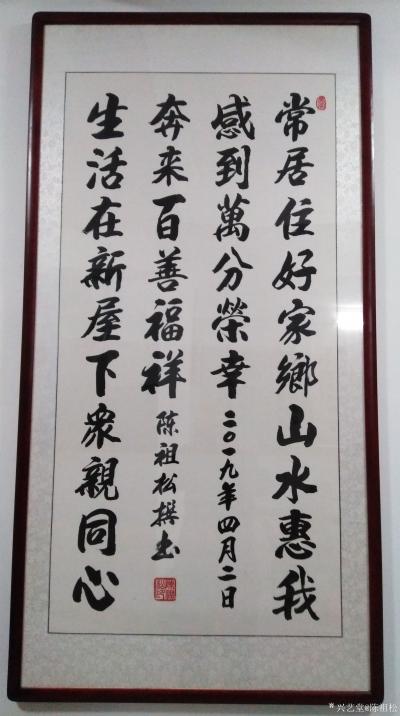 常居住好家鄉山水惠我
感到萬分榮幸
二〇一九年四月二日
生活在新屋下衆親同心
奔来百善福祥
陈祖松撰书
*兴艺堂@陈祖松